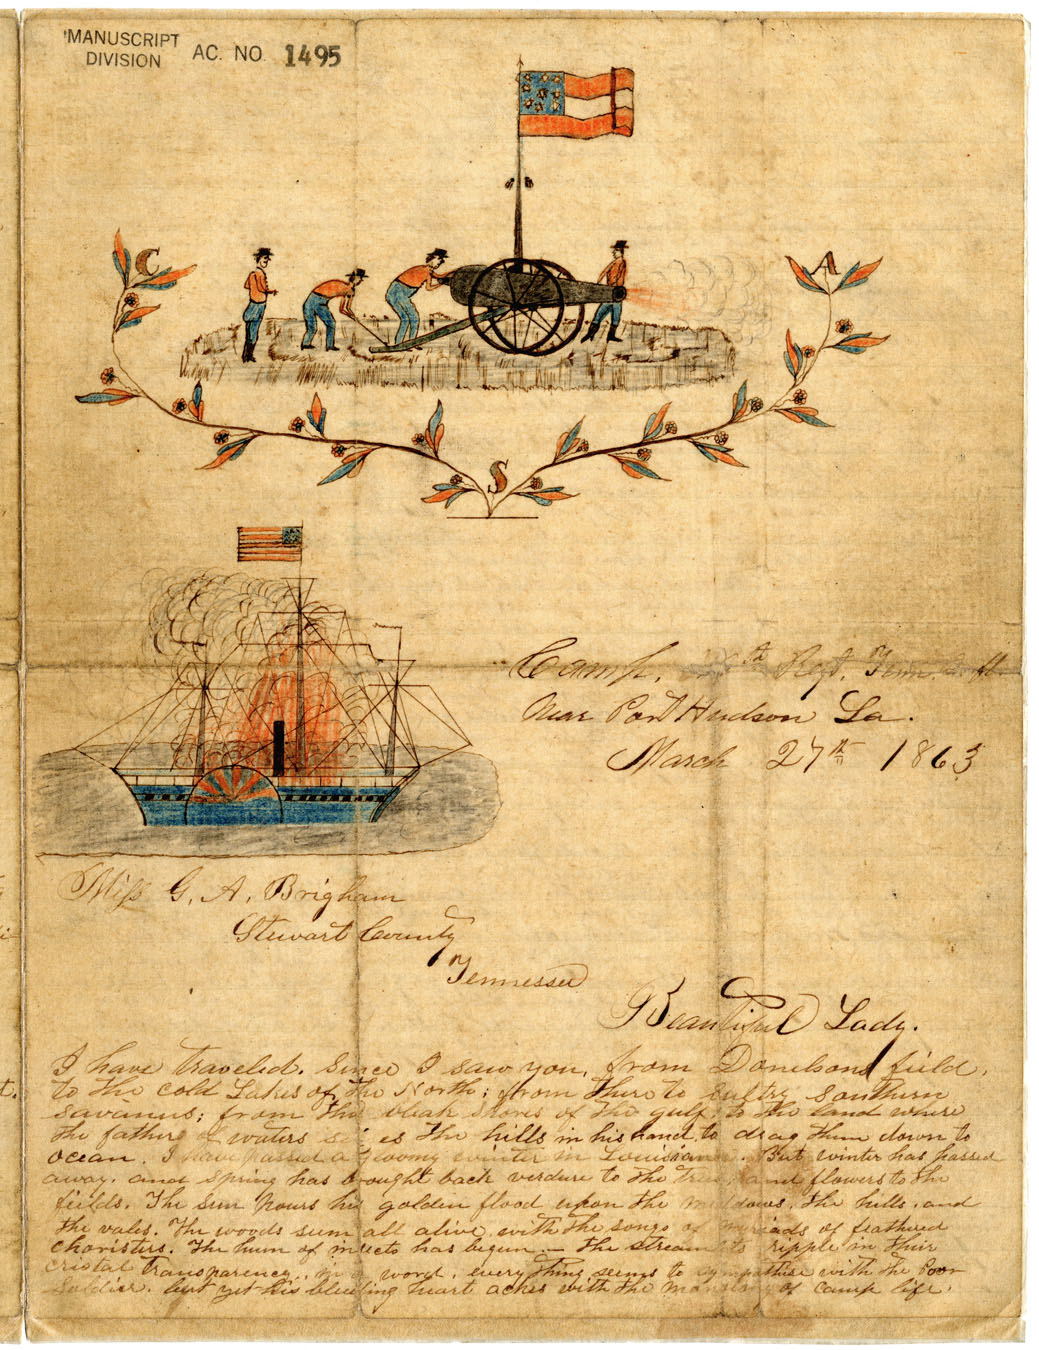 MANUSCRIPT
DIVISION AC. NO. 1495
C
A
S
Camp, th Regt. Tenn.
Near Port Hudson La.
March 27th 1863
Miss G. A. Brigham
Stewart County
Tennessee
Beautiful Lady.
I have traveled. Since I saw you, from Donelson field,
to the cold Lakes of the North; from there to sultry southern
savanus; from the bleak shores of the gulf, to the land where
the father of waters es the hills in his hand, to drag them down to
ocean. I have passed a gloomy winter in Louisiana. But winter has passed
away, and Spring has brought back verdure to the trees, and flowers to the
fields. The sun pours his golden flood upon the meddows, the hills, and
the vales. The woods seem all alive, with the songs of myriads of feathered
choristers. The hum of insects has begun — the streams to ripple in their
cristal transparency, in a word, every thing seems to sympathise with the Poor
Soldier, but yet his bleeding heart aches with the monotony of camp life.